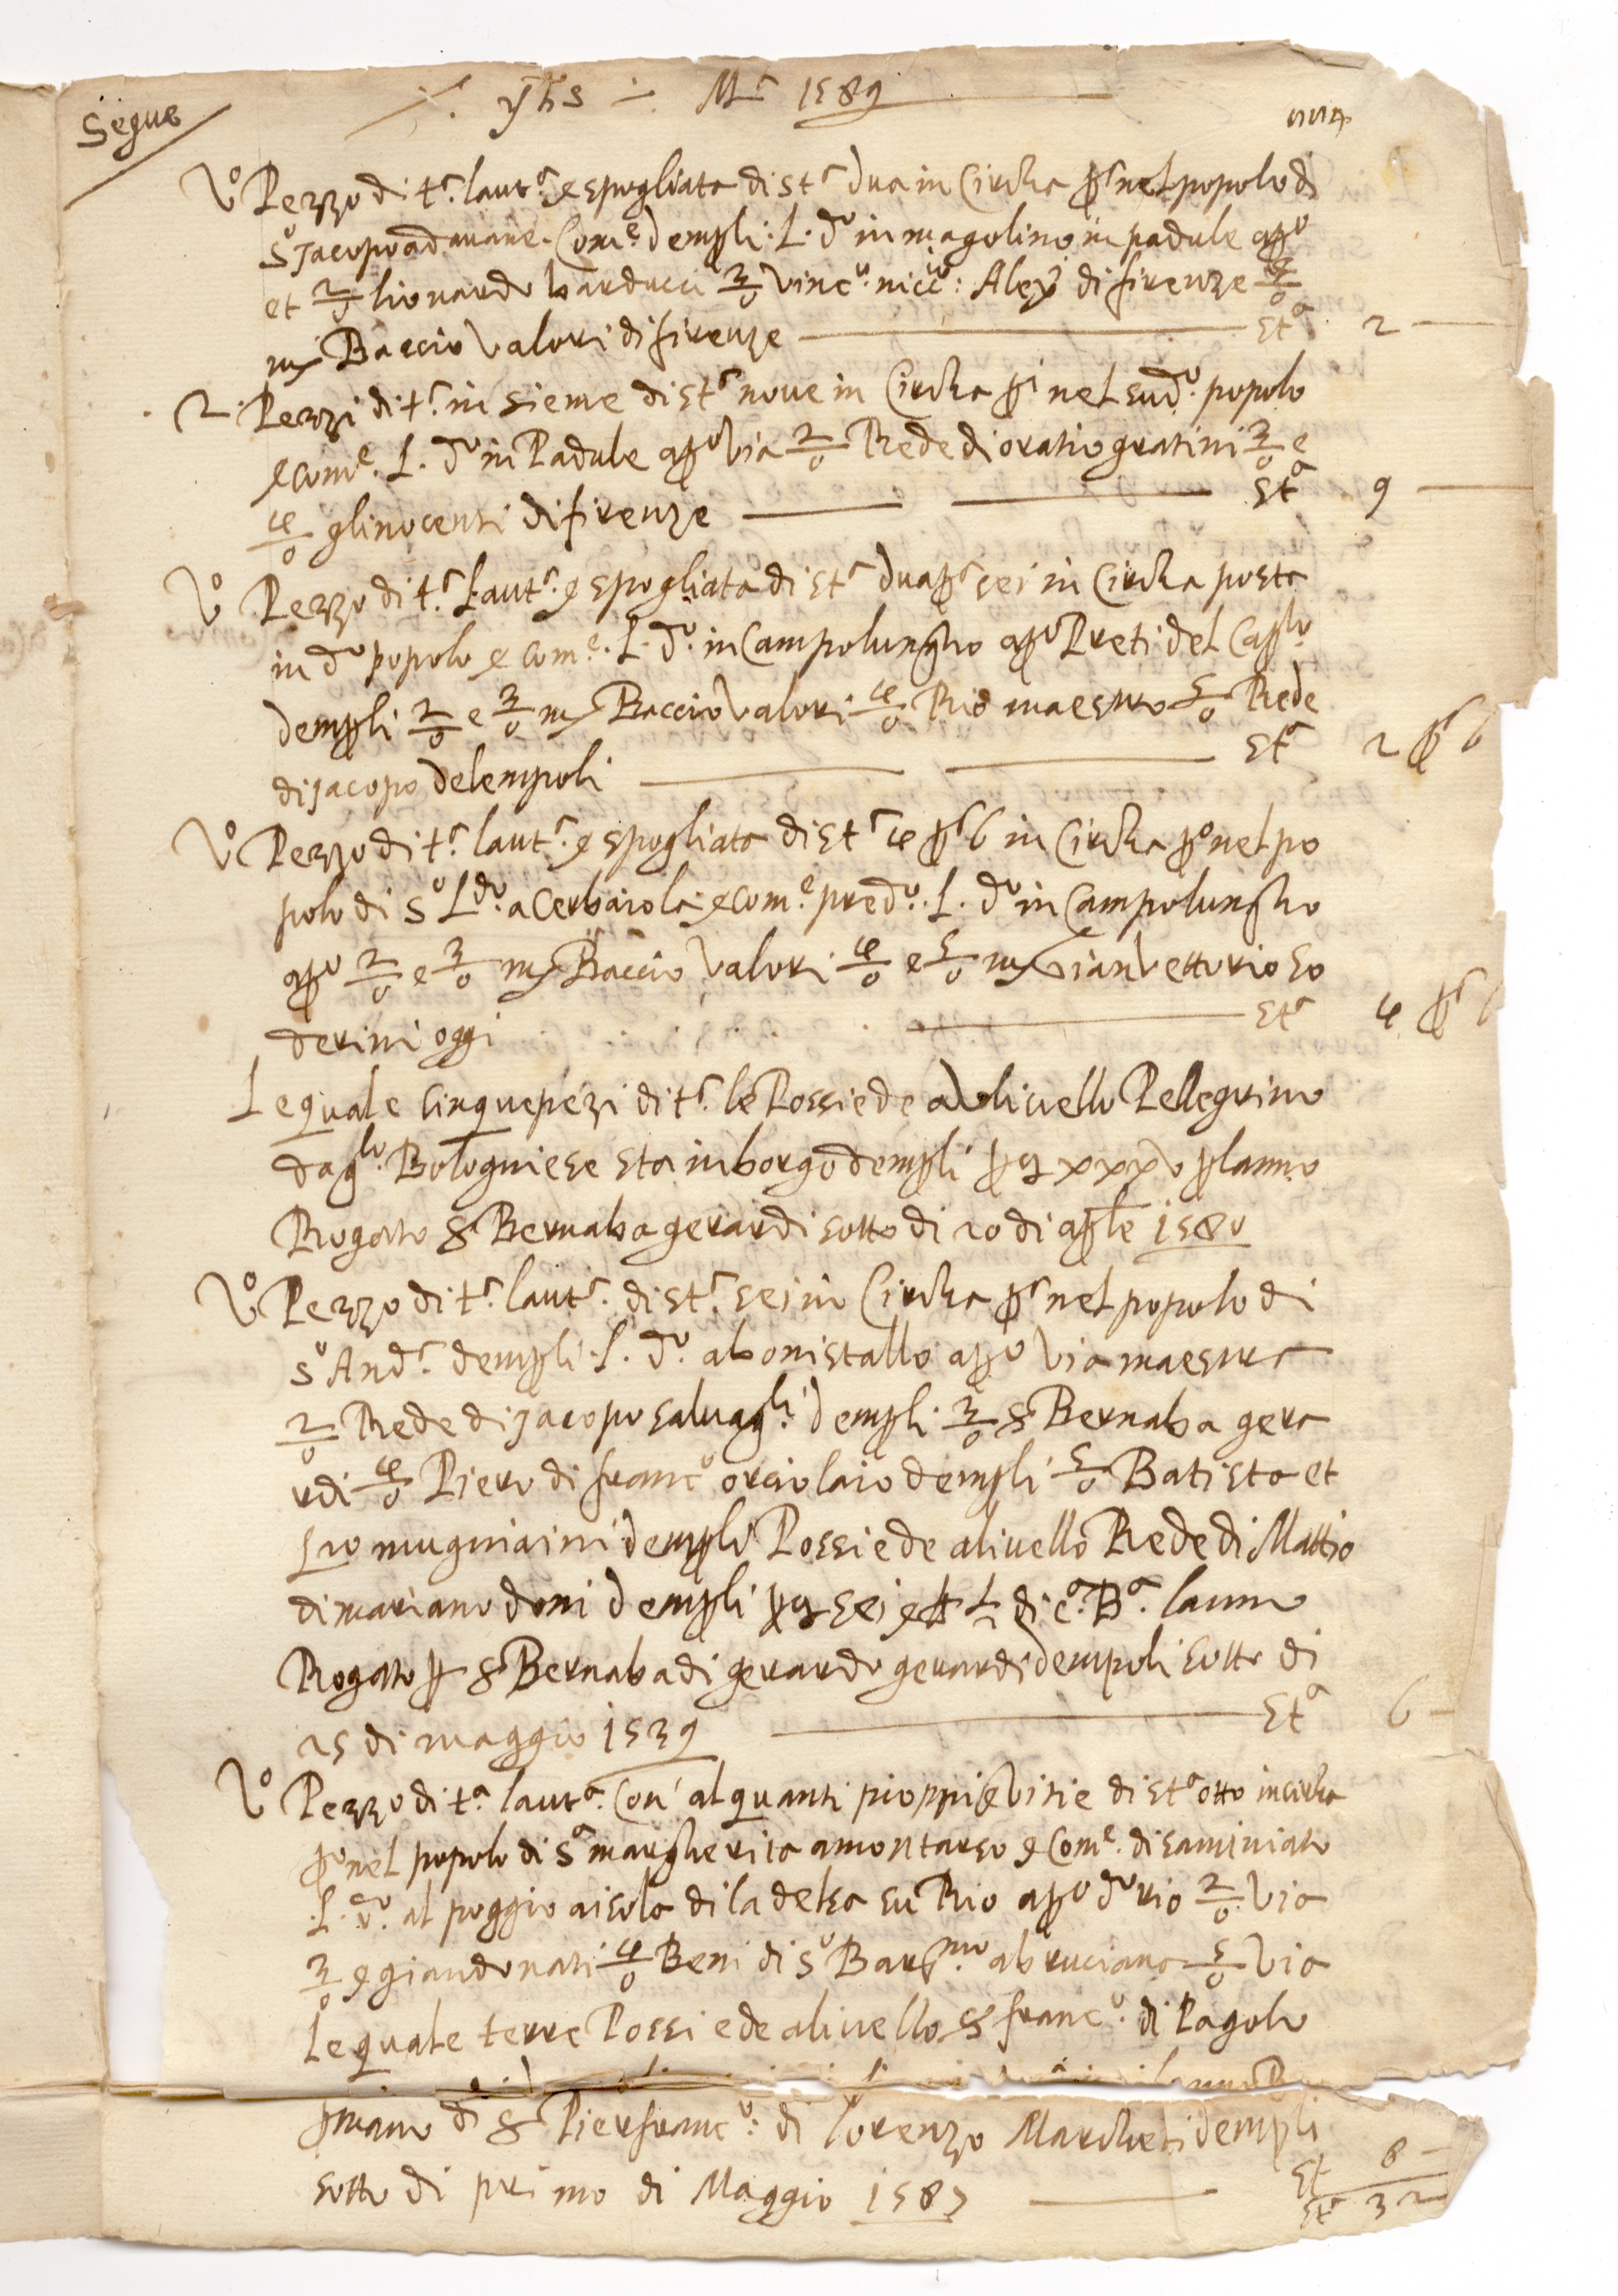 Segue
yhs M 1589
Vo Pezzo di tr. lautr. e spogliata di str dua in Circha pr nel popolo di
So Jacopo ad auane. Come dempli. L. do in magolino in padule apo
et 2/o lionardo barducci 3/o Vinco. nicco: Alex di firenze 4/o
mß Baccio Valori di firenze sta 2
2 Pezzi di tr. insieme di str noue in Circha pi nel sudo. popolo
e come. L. do in Padule apo Via 2/o Rede di oratio gratini 3/o e
4/o glinocenti di firenze sta 9
Vo Pezzo di tr. lautr. e spogliata di str dua pr sei in Circha posta
in do popolo e come. L. do. in Campolungho apo Preti del Caplo
dempli 2/o e 3/o mß Baccio Valori 4/o Rio maestro 5/o Rede
di jacopo delempoli sta 2 pr 6
Vo Pezzo di tr. lautr. e spogliata di str 4 pr 6 in Circha po nel po
polo di So Ldo. a Cerbaiola e come. predo. L. do in Campolungho
apo 2/o e 3/o mß Baccio Valori 4/o e 5/o mß Gianvettorio so
derini oggi sta 4 pr 6
Le quale cinque pezi di tr. le Possiede a livello Pellegrino
daglo. Bologniese sta in borgo dempli xxxv planno
Rogato S Bernaba gerardi sotto di 20 di aple 1580
Vo Pezzo di tr. lautr. di str. sei in Circha pr nel popolo di
So Andr. dempli. L. do. abonistallo apo Via maestra
2/o Rede di jacopo saluagli dempli 3/o S Bernaba gera
rdi 4/o Piero di franco orciolaio dempli 5/o Batista et
mugniaini dempli Possiede a livello Rede di Mattio
di mariano doni dempli sei e di ca. Ba. lanno
Rogato p S Bernaba di gerardo gerardi dempoli sotto di
25 di maggio 1539 sta 6
Vo Pezzo di ta. lauta. Con alquanti pioppi e Vitie di sta otto incircha
po nel popolo di Sa margherita a montarso e Come. di saminiato
L. do. al poggio aisola di la delsa su Rio apo do rio 2/o Via
3/o e giandonati 4/o Beni di So Barpmo. abruciano 5/o Via
Le quale terre Possiede a livello S franco. di Pagolo
pmano di S Pierfranco: di lorenzo Marcheti dempli
st 8
sotto di primo di Maggio 1587
sta 32